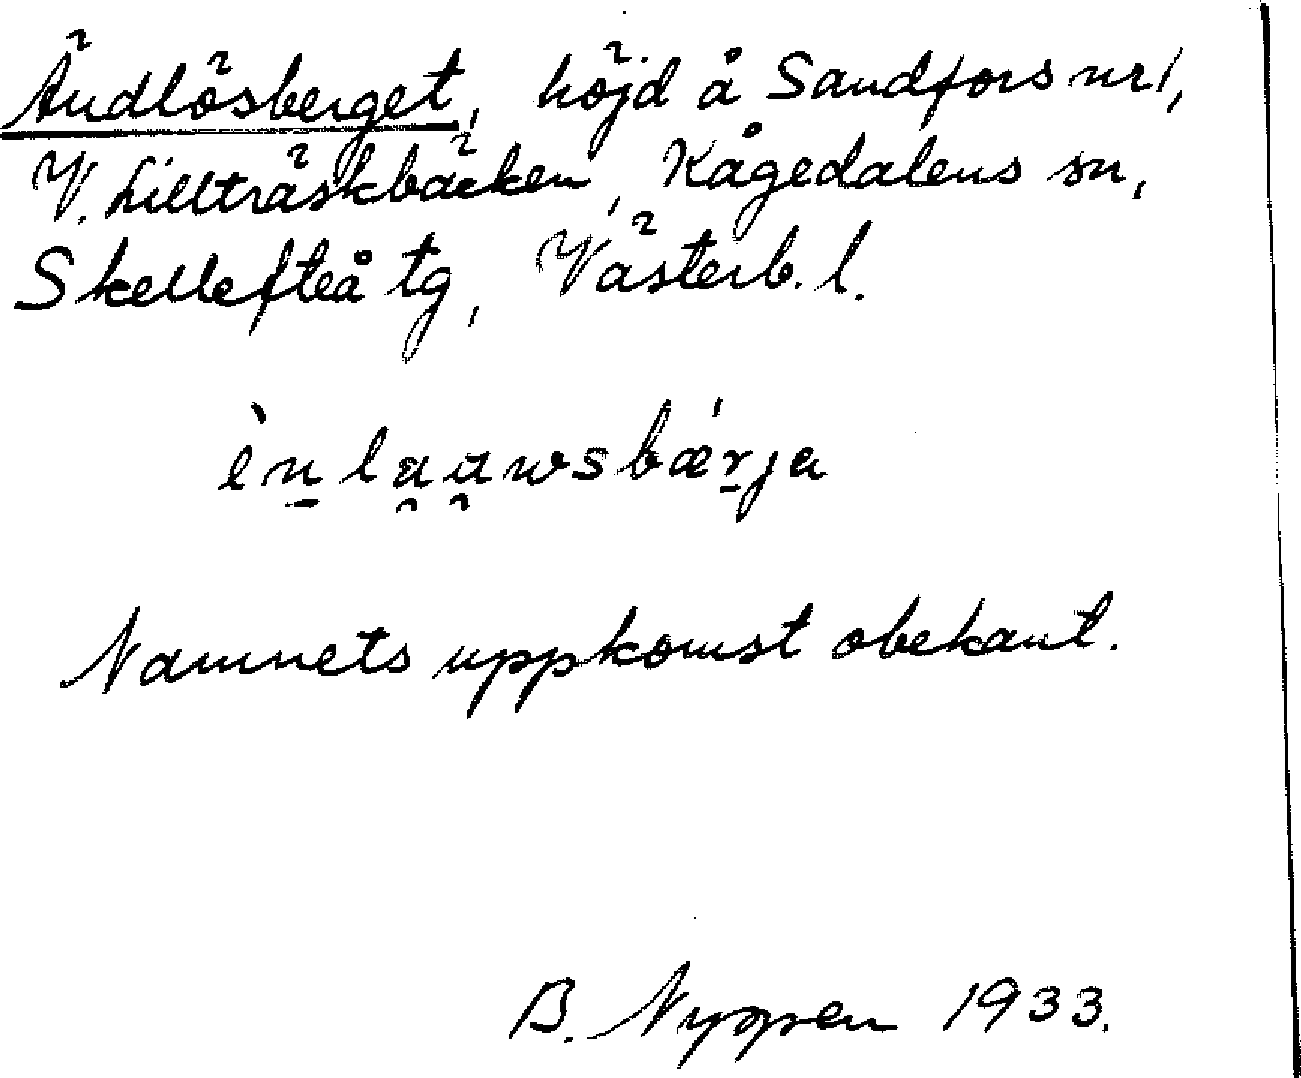 Ändlösberget, höjd å Sandfors nr 1,
V. Lillträskbäcken, Kågedalens sn,
Skellefteå tg, Västerb. l.
Namnets uppkomst obekant.
B. Nygren 1933.